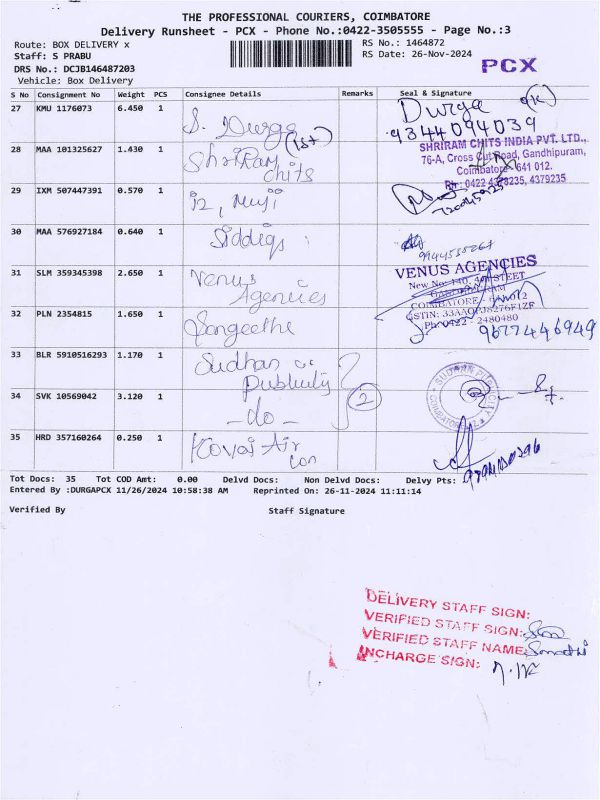 THE PROFESSIONAL COURIERS, COIMBATORE
Delivery Runsheet - PCX - Phone No.:0422-3505555 - Page No.:3
Route: BOX DELIVERY x
RS No.: 1464872
Staff: S PRABU
RS Date: 26-Nov-2024
DRS No.: DCJB146487203
Vehicle: Box Delivery
PCX
S No Consignment No Weight PCS Consignee Details Remarks Seal & Signature
27 KMU 1176073 6.450 1 S. Durga (1st) Durga
9344094039
28 MAA 101325627 1.430 1 Shriram
chits
SHRIRAM CHITS INDIA PVT. LTD.,
76-A, Cross Cut Road, Gandhipuram,
Coimbatore - 641 012.
Ph: 0422 4378235, 4379235
29 IXM 507447391 0.570 1
30 MAA 576927184 0.640 1 Siddiqs
31 SLM 359345398 2.650 1 Venus
Agencies
VENUS AGENCIES
New No: 140, STREET
COIMBATORE
GSTIN:
Ph: 0422 - 2480480
32 PLN 2354815 1.650 1 Sangeetha 9677446949
33 BLR 5910516293 1.170 1 Sudhan
Publicity
SUDHAN PUBLICITY
COIMBATORE
34 SVK 10569042 3.120 1 -do- 2
35 HRD 357160264 0.250 1 Kovai Air
con
Tot Docs: 35 Tot COD Amt: 0.00 Delvd Docs: Non Delvd Docs: Delvy Pts:
Entered By :DURGAPCX 11/26/2024 10:58:38 AM Reprinted On: 26-11-2024 11:11:14
Verified By Staff Signature
DELIVERY STAFF SIGN:
VERIFIED STAFF SIGN:
VERIFIED STAFF NAME:
INCHARGE SIGN: